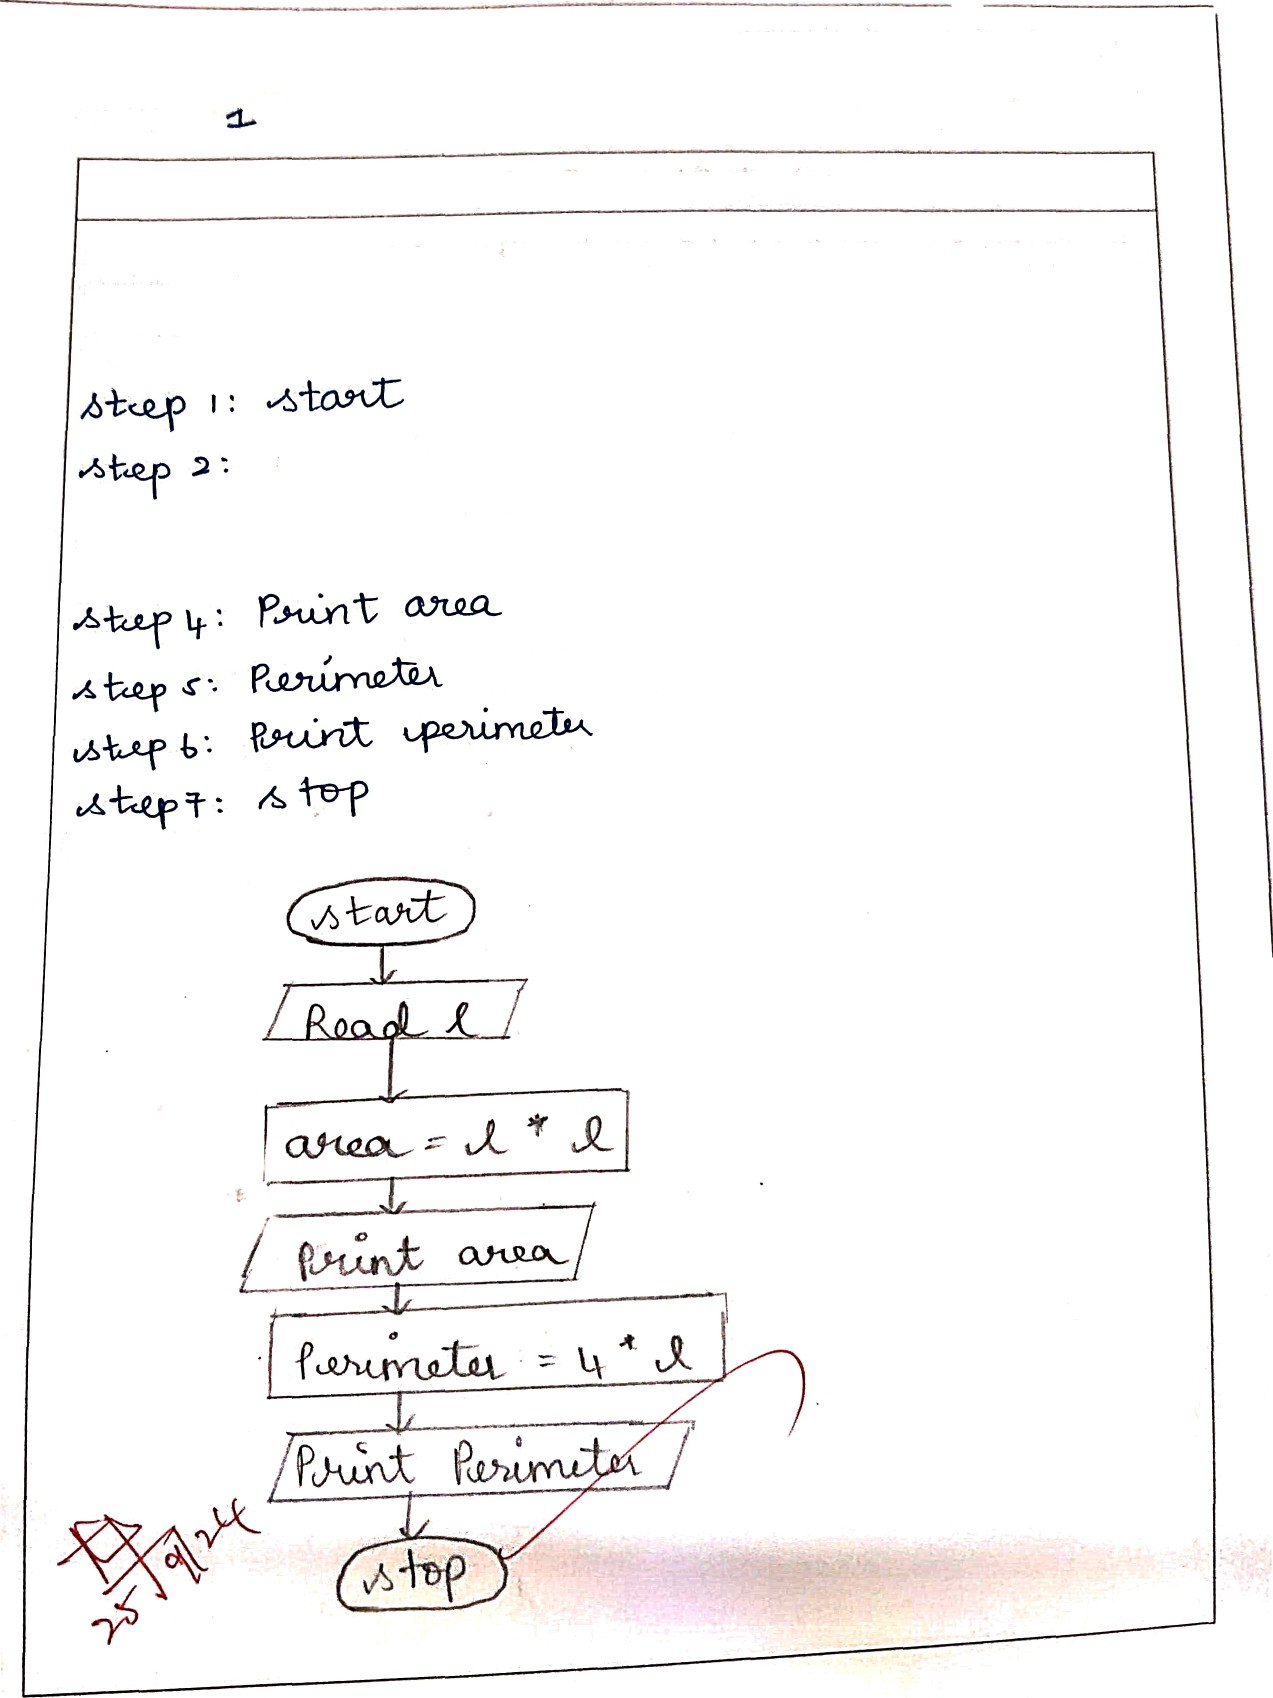 1
step 1: start
step 2:
step 4: Print area
step 5: Perimeter
step 6: Print perimeter
step 7: stop
start
Read l
area = l * l
Print area
Perimeter = 4 * l
Print Perimeter
stop
25/9/24